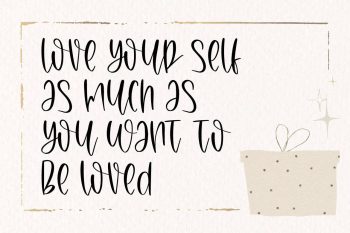 love your self
as much as
you want to
be loved